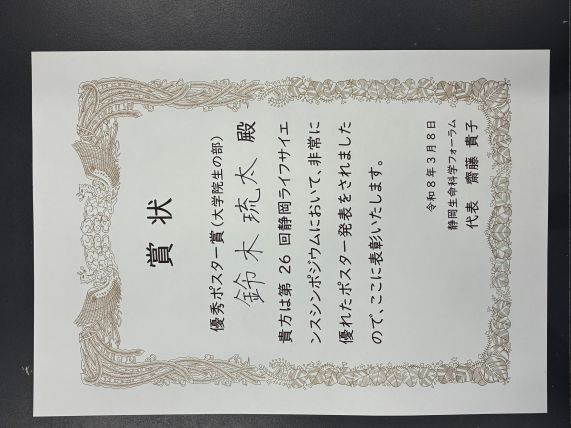 賞状
優秀ポスター賞(大学院生の部)
鈴木 琉太 殿
貴方は第26回静岡ライフサイエ
ンスシンポジウムにおいて、非常に
優れたポスター発表をされました
ので、ここに表彰いたします。
令和8年3月8日
静岡生命科学フォーラム
代表 齋藤 貴子